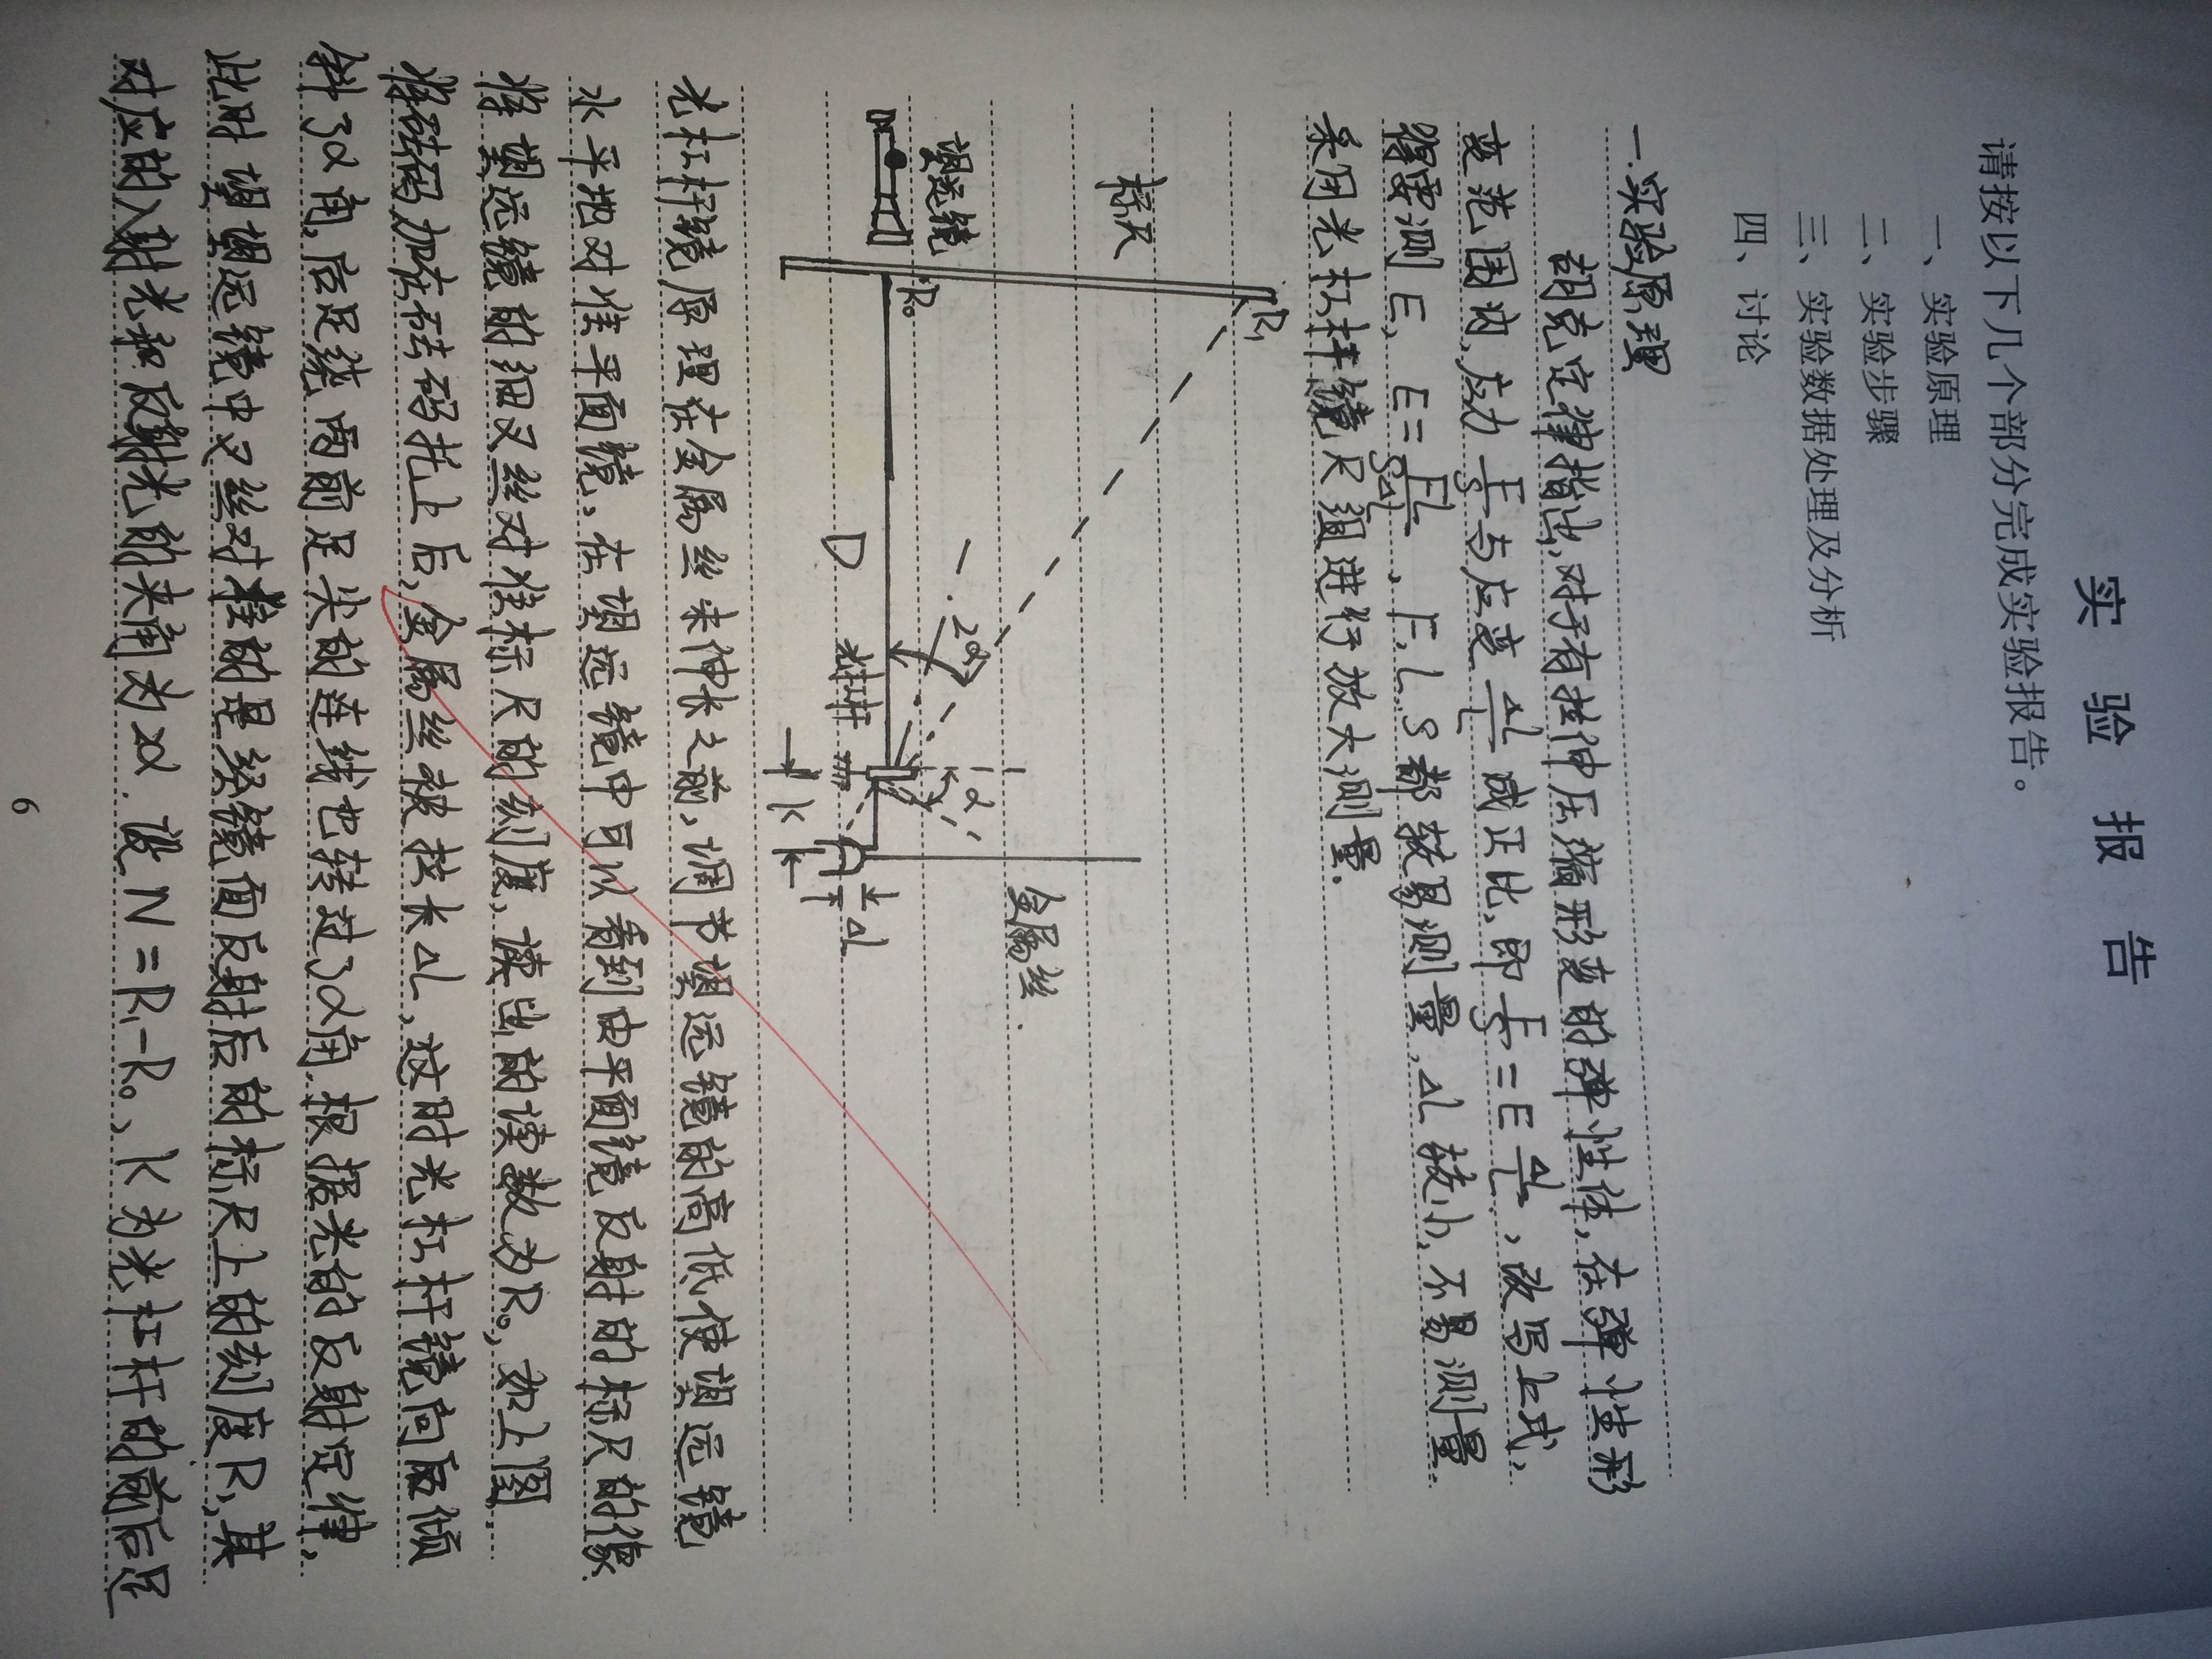 实 验 报 告
请按以下几个部分完成实验报告。
一、实验原理
二、实验步骤
三、实验数据处理及分析
四、讨论
一.实验原理
胡克定律指出,对于有拉伸压缩形变的弹性体,在弹性形
变范围内,应力 F/S 与应变 ΔL/L 成正比,即 F/S = E ΔL/L ,改写上式,
得要测E, E = FL/SΔL , F, L, S都较易测量,ΔL较小,不易测量.
采用光杠杆镜尺组进行放大测量.
R₁
标尺
金属丝.
望远镜
R₀
2α
α
D
光杠杆
ΔL
K
光杠杆镜原理在金属丝未伸长之前,调节望远镜的高低使望远镜
水平地对准平面镜,在望远镜中可以看到由平面镜反射的标尺的像.
将望远镜的细叉丝对准标尺的刻度,读出的读数为R₀,如上图.
将砝码加在砝码托上后,金属丝被拉长ΔL,这时光杠杆镜向后倾
斜了α角,后足绕两前足尖的连线也转过了α角.根据光的反射定律,
此时望远镜中叉丝对准的是经镜面反射后的标尺上的刻度R₁,其
对应的入射光和反射光的夹角为2α.设N=R₁-R₀、K为光杠杆的前后足
6